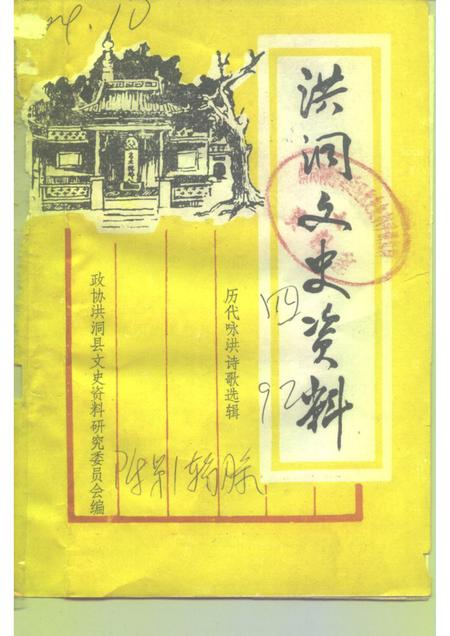 洪洞文史资料
四
92
历代咏洪诗歌选辑
政协洪洞县文史资料研究委员会编